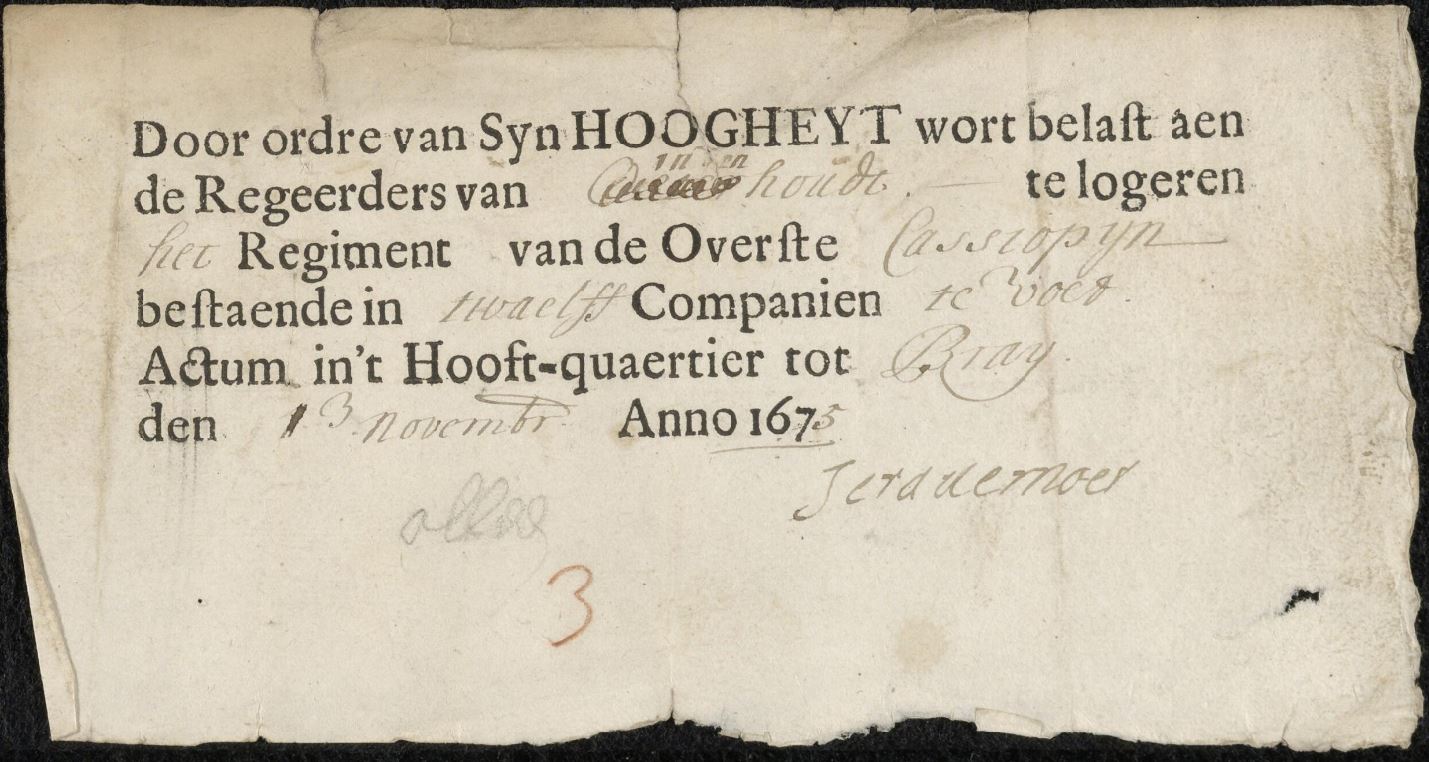 Door ordre van Syn HOOGHEYT wort belaſt aen
in den
de Regeerders van houdt. — te logeren
het Regiment van de Overſte Cassiopijn
beſtaende in twaelff Companien te voet.
Actum in't Hooft-quaertier tot Bray.
den 13 novembr Anno 1675
3